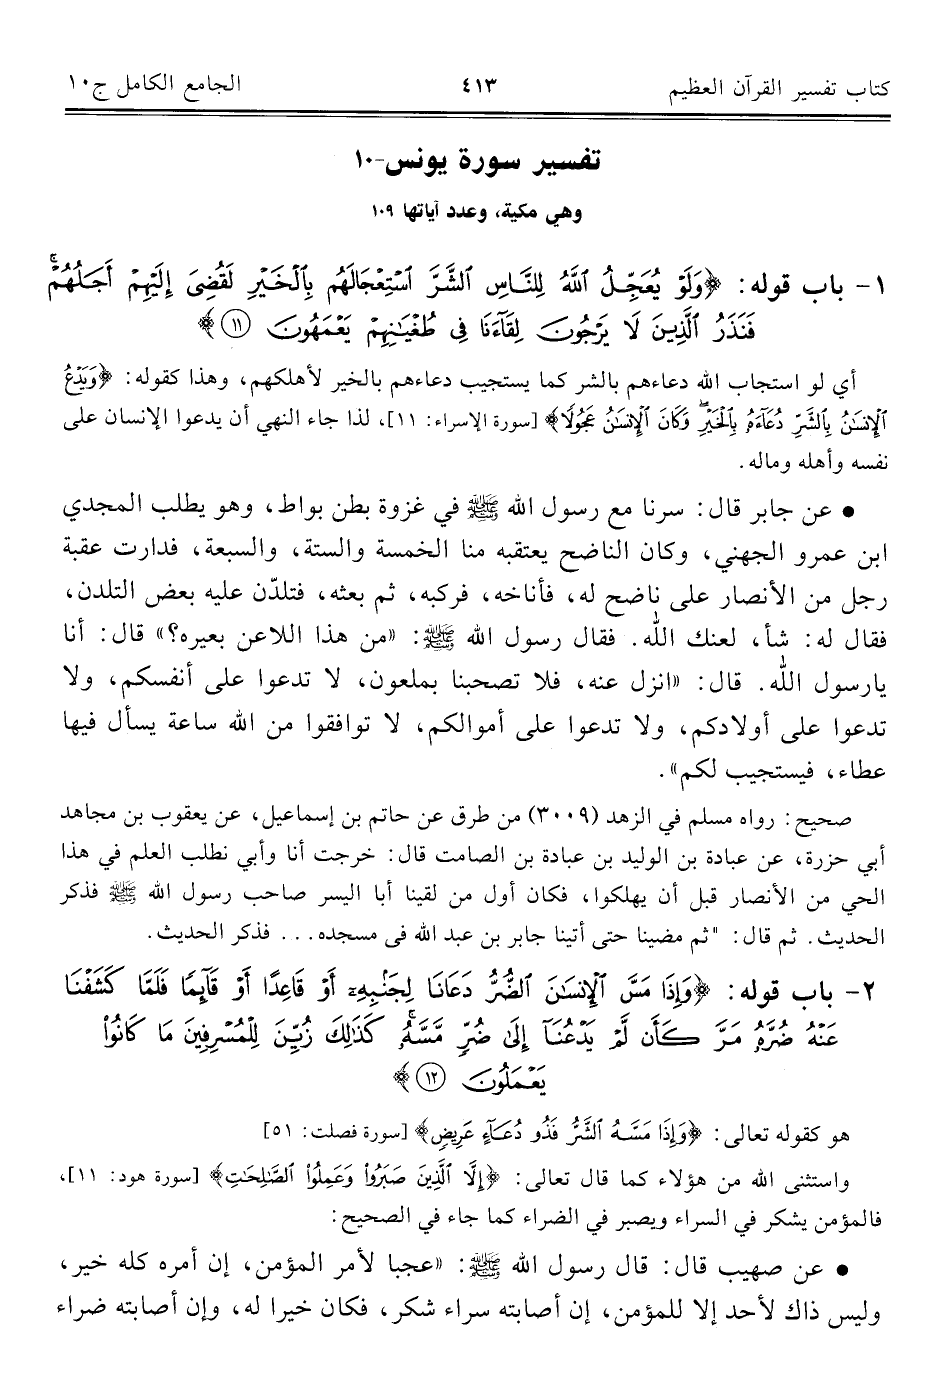 كتاب تفسير القرآن العظيم ٤١٣ الجامع الكامل ج١٠
تفسير سورة يونس-١٠
وهي مكية، وعدد آياتها ١٠٩
١- باب قوله: ﴿وَلَوْ يُعَجِّلُ ٱللَّهُ لِلنَّاسِ ٱلشَّرَّ ٱسْتِعْجَالَهُم بِٱلْخَيْرِ لَقُضِىَ إِلَيْهِمْ أَجَلُهُمْ ۖ
فَنَذَرُ ٱلَّذِينَ لَا يَرْجُونَ لِقَآءَنَا فِى طُغْيَـٰنِهِمْ يَعْمَهُونَ ١١﴾
أي لو استجاب الله دعاءهم بالشر كما يستجيب دعاءهم بالخير لأهلكهم، وهذا كقوله: ﴿وَيَدْعُ
ٱلْإِنسَـٰنُ بِٱلشَّرِّ دُعَآءَهُۥ بِٱلْخَيْرِ ۖ وَكَانَ ٱلْإِنسَـٰنُ عَجُولًا﴾ [سورة الإسراء: ١١]، لذا جاء النهي أن يدعوا الإنسان على
نفسه وأهله وماله.
• عن جابر قال: سرنا مع رسول الله ﷺ في غزوة بطن بواط، وهو يطلب المجدي
ابن عمرو الجهني، وكان الناضح يعتقبه منا الخمسة والستة، والسبعة، فدارت عقبة
رجل من الأنصار على ناضح له، فأناخه، فركبه، ثم بعثه، فتلدّن عليه بعض التلدن،
فقال له: شأ، لعنك الله. فقال رسول الله ﷺ: «من هذا اللاعن بعيره؟» قال: أنا
يارسول الله. قال: «انزل عنه، فلا تصحبنا بملعون، لا تدعوا على أنفسكم، ولا
تدعوا على أولادكم، ولا تدعوا على أموالكم، لا توافقوا من الله ساعة يسأل فيها
عطاء، فيستجيب لكم».
صحيح: رواه مسلم في الزهد (٣٠٠٩) من طرق عن حاتم بن إسماعيل، عن يعقوب بن مجاهد
أبي حزرة، عن عبادة بن الوليد بن عبادة بن الصامت قال: خرجت أنا وأبي نطلب العلم في هذا
الحي من الأنصار قبل أن يهلكوا، فكان أول من لقينا أبا اليسر صاحب رسول الله ﷺ فذكر
الحديث. ثم قال: "ثم مضينا حتى أتينا جابر بن عبد الله فى مسجده... فذكر الحديث.
٢- باب قوله: ﴿وَإِذَا مَسَّ ٱلْإِنسَـٰنَ ٱلضُّرُّ دَعَانَا لِجَنۢبِهِۦٓ أَوْ قَاعِدًا أَوْ قَآئِمًا فَلَمَّا كَشَفْنَا
عَنْهُ ضُرَّهُۥ مَرَّ كَأَن لَّمْ يَدْعُنَآ إِلَىٰ ضُرٍّ مَّسَّهُۥ ۚ كَذَٰلِكَ زُيِّنَ لِلْمُسْرِفِينَ مَا كَانُوا۟
يَعْمَلُونَ ١٢﴾
هو كقوله تعالى: ﴿وَإِذَا مَسَّهُ ٱلشَّرُّ فَذُو دُعَآءٍ عَرِيضٍ﴾ [سورة فصلت: ٥١]
واستثنى الله من هؤلاء كما قال تعالى: ﴿إِلَّا ٱلَّذِينَ صَبَرُوا۟ وَعَمِلُوا۟ ٱلصَّـٰلِحَـٰتِ﴾ [سورة هود: ١١]،
فالمؤمن يشكر في السراء ويصبر في الضراء كما جاء في الصحيح:
• عن صهيب قال: قال رسول الله ﷺ: «عجبا لأمر المؤمن، إن أمره كله خير،
وليس ذاك لأحد إلا للمؤمن، إن أصابته سراء شكر، فكان خيرا له، وإن أصابته ضراء